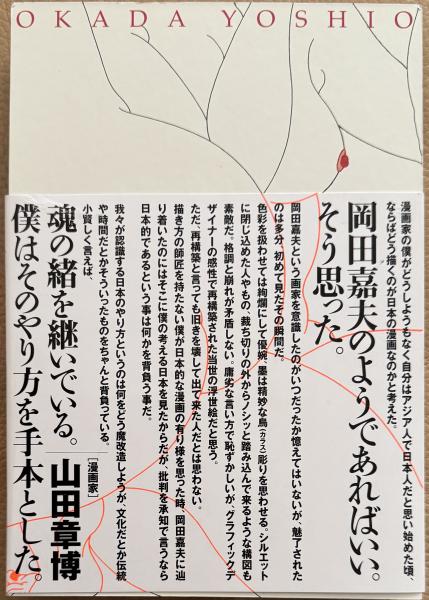 OKADA YOSHIO
漫画家の僕がどうしようもなく自分はアジア人で日本人だと思い始めた頃、
ならばどう描くのが日本の漫画なのかと考えた。
岡田嘉夫のようであればいい。
そう思った。
岡田嘉夫という画家を意識したのがいつだったか憶えてはいないが、魅了された
のは多分、初めて見たその瞬間だ。
色彩を扱わせては絢爛にして優婉、墨は精妙な烏(カラス)彫りを思わせる。シルエット
に閉じ込めた人やもの、裁ち切りの外からノシッと踏み込んで来るような構図も
素敵だ。格調と崩れが矛盾しない。庸劣な言い方で恥ずかしいが、グラフィックデ
ザイナーの感性で再構築された当世の浮世絵だと思う。
ただ、再構築と言っても旧きを壊して出て来た人だとは思わない。
描き方の師匠を持たない僕が日本的な漫画の有り様を思った時、岡田嘉夫に辿
り着いたのにはそこに僕の考える日本を見たからだが、批判を承知で言うなら
日本的であるという事は何かを背負う事だ。
我々が認識する日本のやり方というのは何をどう魔改造しようが、文化だとか伝統
や時間だとかそういったものをちゃんと背負っている。
小賢しく言えば、
魂の緒を継いでいる。
僕はそのやり方を手本とした。
[漫画家]
山田章博